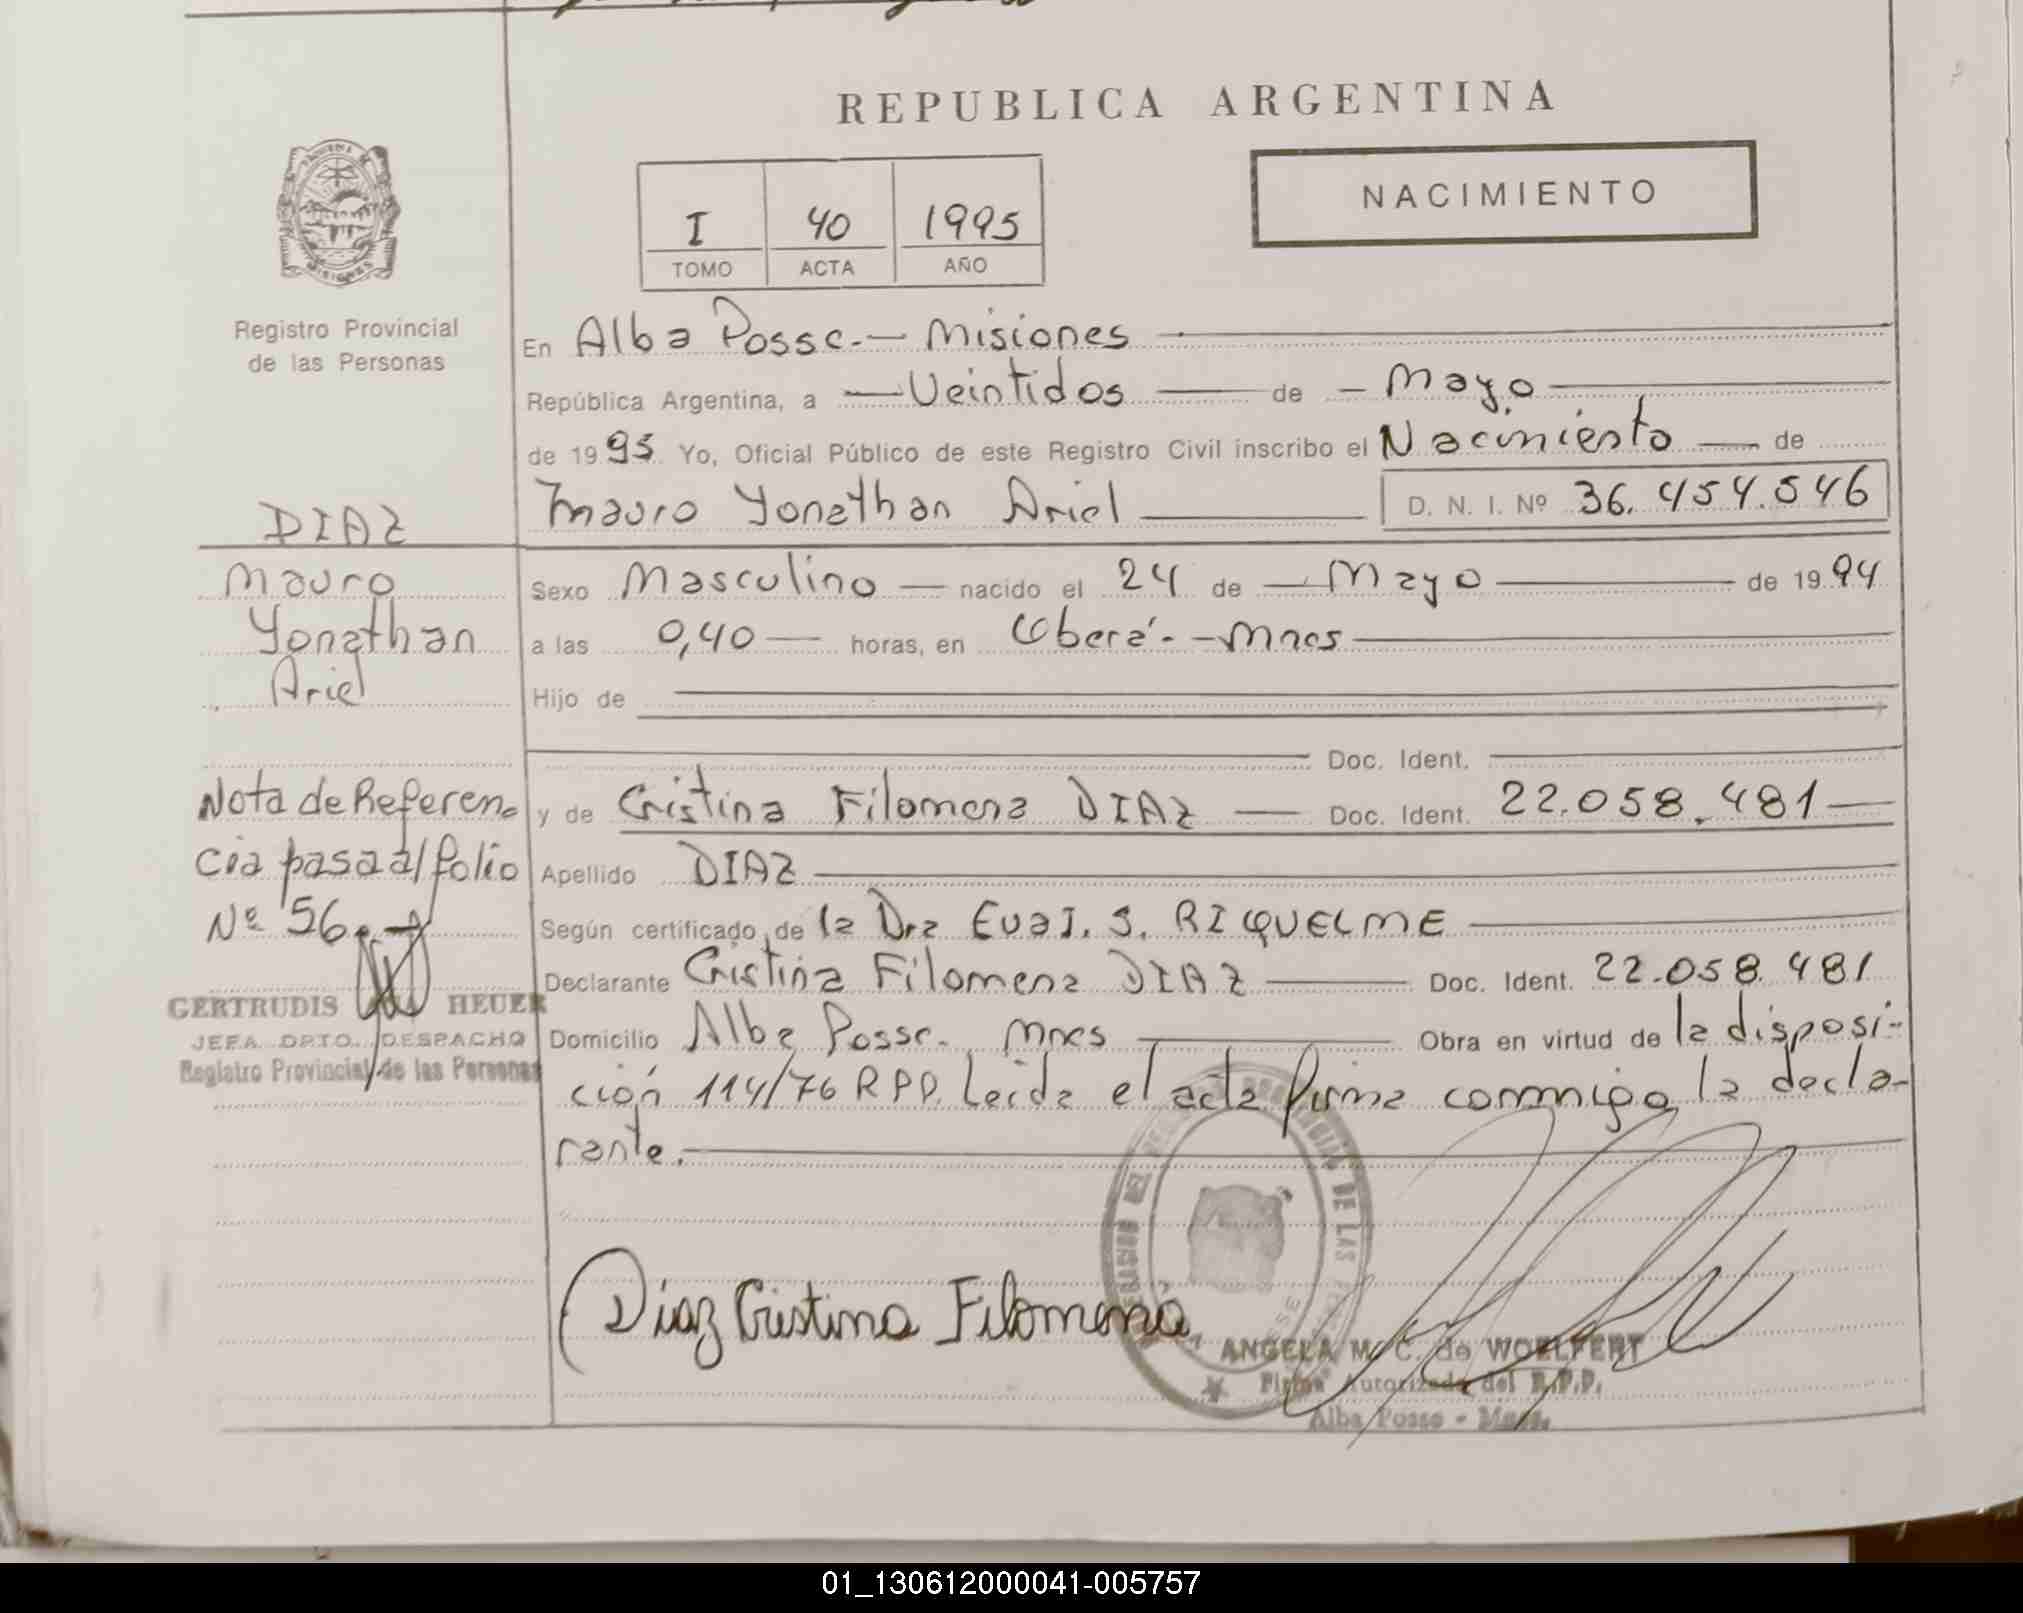 REPUBLICA ARGENTINA
NACIMIENTO
I 40 1995
TOMO ACTA AÑO
Registro Provincial
de las Personas
En Alba Posse.- Misiones
República Argentina, a Veintidos de Mayo
de 1995 Yo, Oficial Público de este Registro Civil inscribo el Nacimiento de
Mauro Yonathan Ariel D. N. I. Nº 36.454.546
DIAZ
Mauro
Yonathan
Ariel
Sexo Masculino nacido el 24 de Mayo de 1994
a las 0,40 horas, en Oberá.- Mnes
Hijo de
Doc. Ident.
y de Cristina Filomena DIAZ Doc. Ident. 22.058.481
Apellido DIAZ
Según certificado de la Dra Eva I. S. RIQUELME
Declarante Cristina Filomena DIAZ Doc. Ident. 22.058.481
Domicilio Alba Posse. Mnes Obra en virtud de la disposi-
ción 114/76 RPP. Leida el acta firma conmigo la decla-
rante.
Nota de Referen
cia pasa al folio
Nº 56.
GERTRUDIS HEUER
JEFA DPTO. DESPACHO
Registro Provincial de las Personas
Diaz Cristina Filomena
DE LAS
ANGELA M. C. de WOELFERT
Firma Autorizada del R.P.P.
Alba Posse - Mnes.
01_130612000041-005757